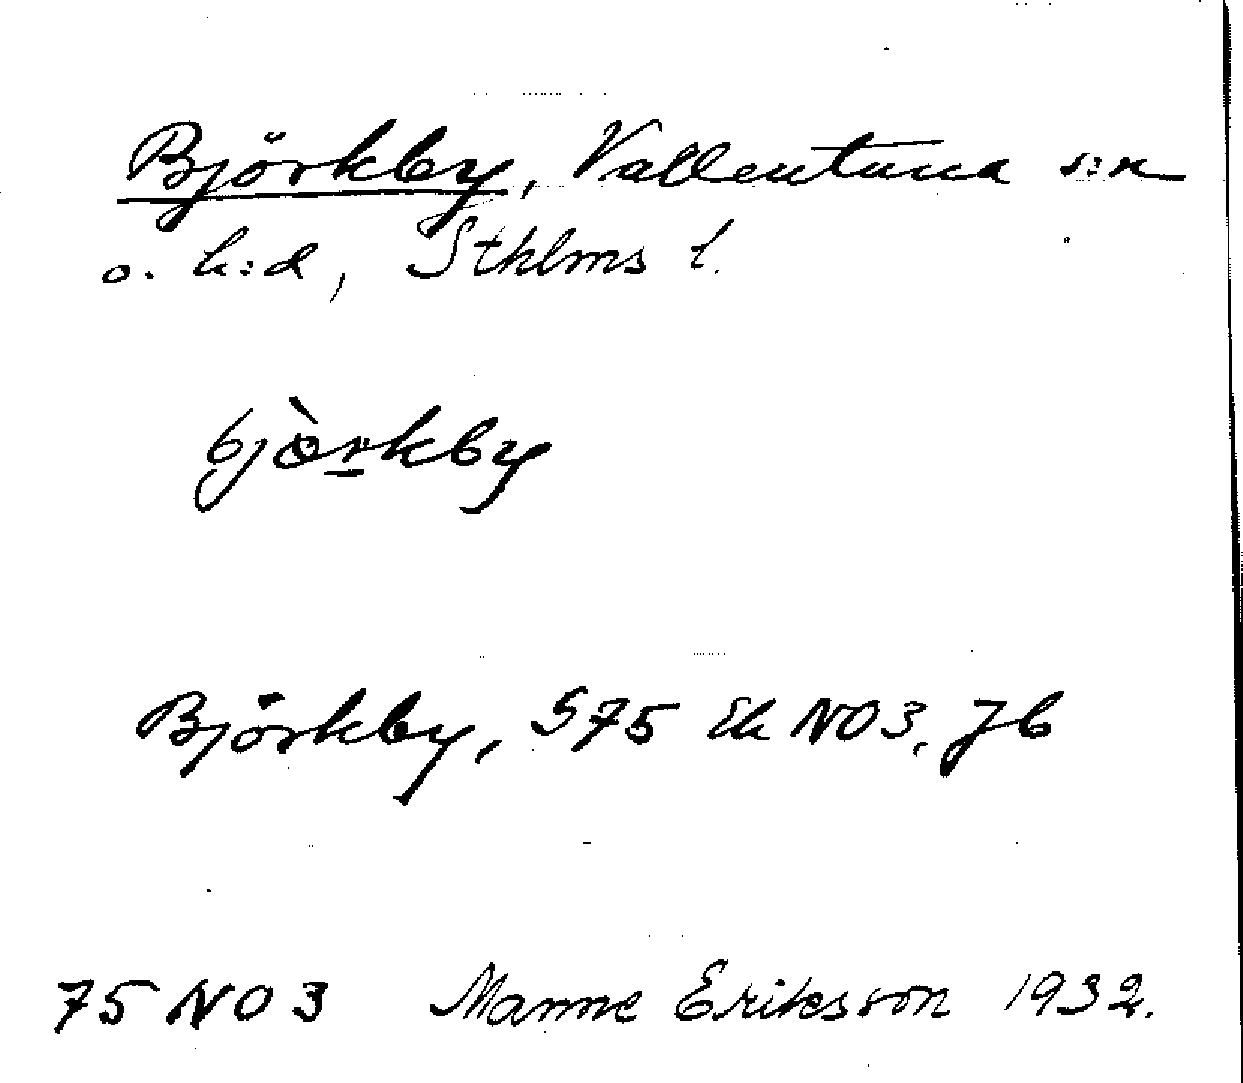 Björkby, Vallentuna s:n
o. h:d, Sthlms l.
bjòrkby
Björkby, S75 Ek NO3, Jb
75 NO 3 Manne Eriksson 1932.